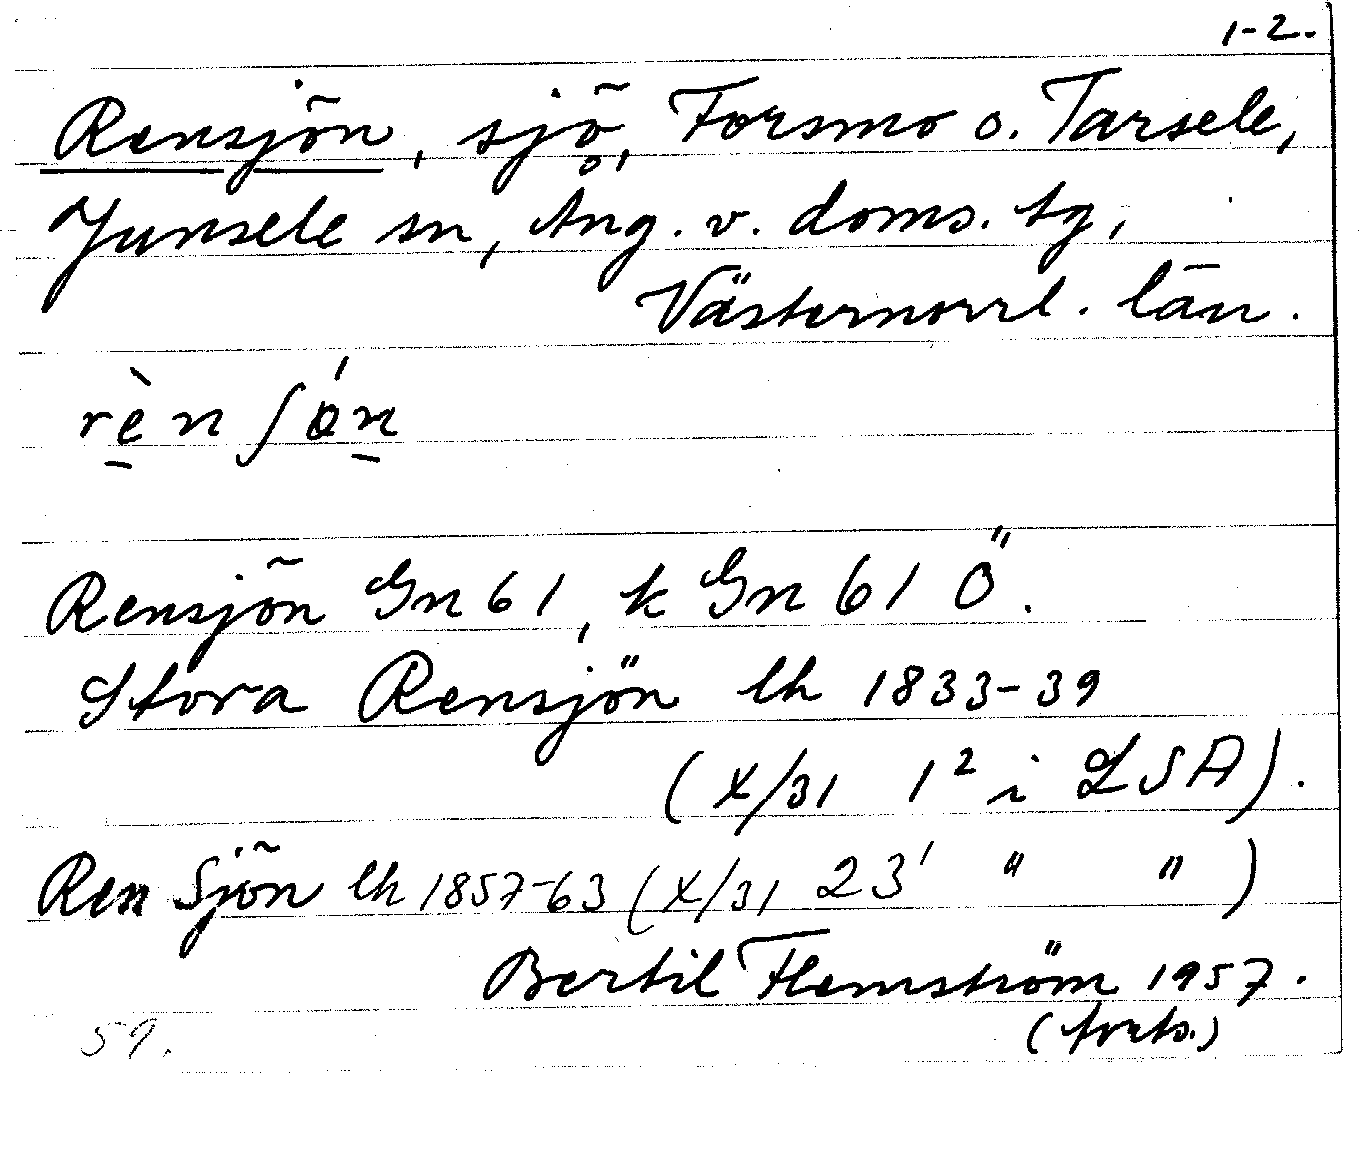 1-2.
Rensjön, sjö, Forsmo o. Tarsele,
Junsele sn, Ång. v. doms. tg,
Västernorrl. län.
rènʃǿn
Rensjön Gn 61, k Gn 61 Ö.
Stora Rensjön lh 1833-39
(X/31 1² i LSA).
Ren Sjön lh 1857-63 (X/31 23' " ")
Bertil Flemström 1957.
(forts.)
59.